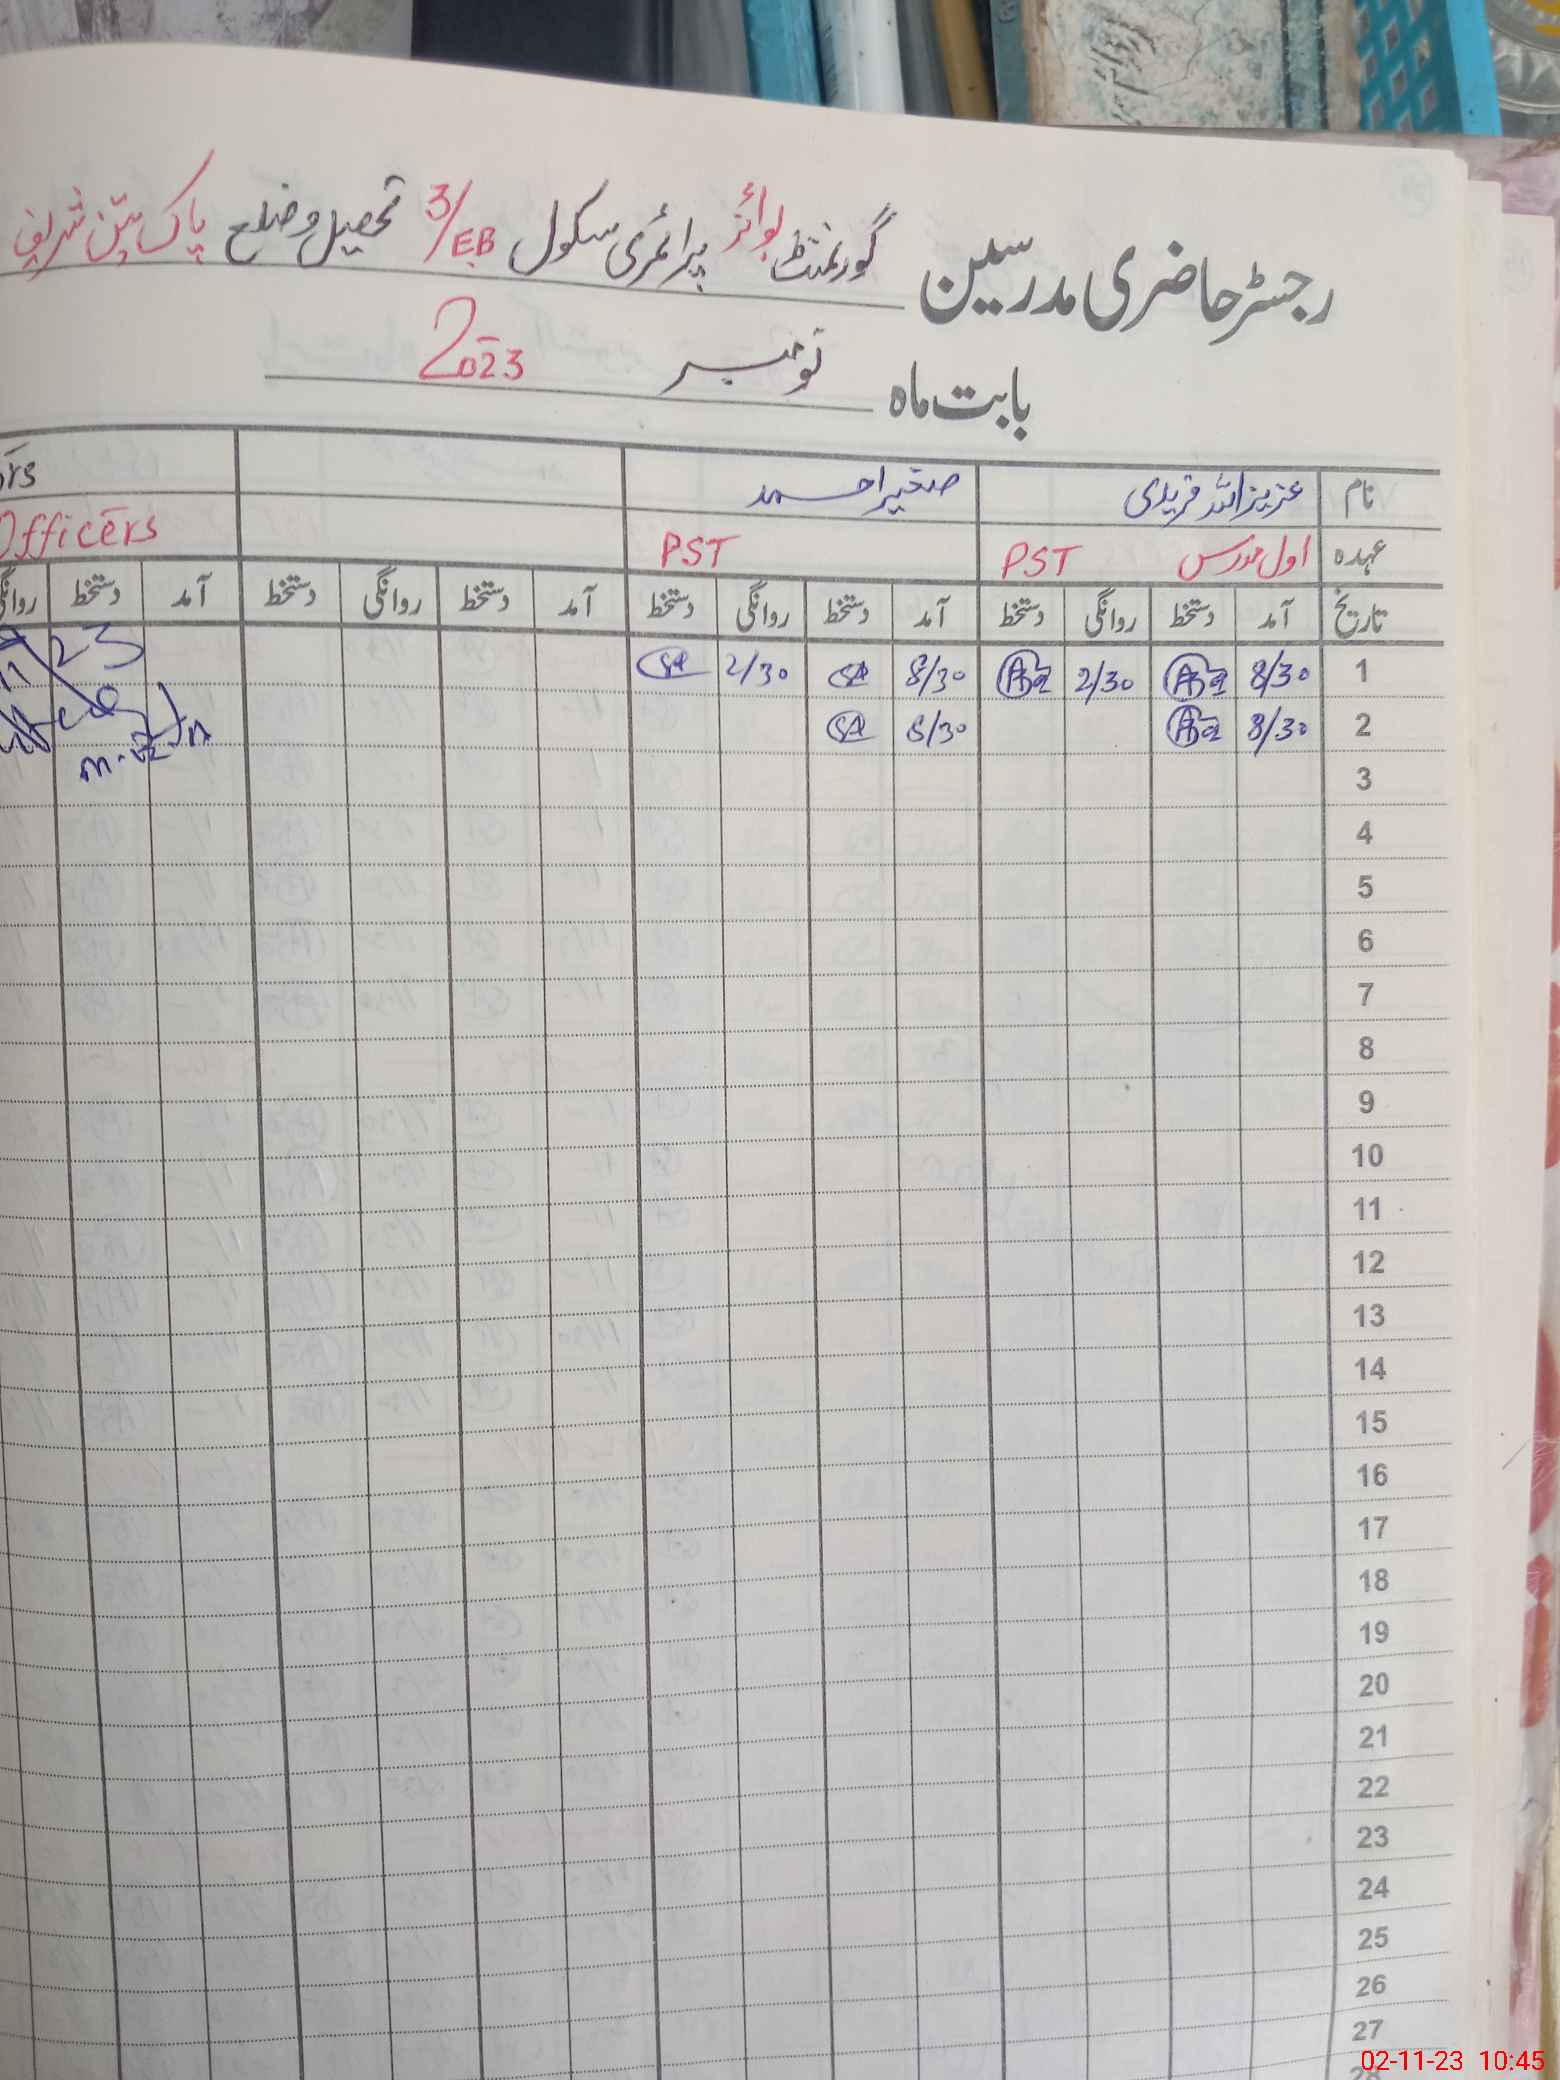 رجسٹر حاضری مدرسین گورنمنٹ بوائز پرائمری سکول 3/EB تحصیل و ضلع پاک پتن شریف
بابت ماہ نومبر 2023
نام عزیز اللہ فریدی صغیر احمد
عہدہ اول مدرس PST PST Officers
تاریخ آمد دستخط روانگی دستخط آمد دستخط روانگی دستخط آمد دستخط روانگی دستخط آمد دستخط
1 8/30 2/30 8/30 SA 2/30 SA 23
2 8/30 8/30 SA
3
4
5
6
7
8
9
10
11
12
13
14
15
16
17
18
19
20
21
22
23
24
25
26
27
28
02-11-23 10:45